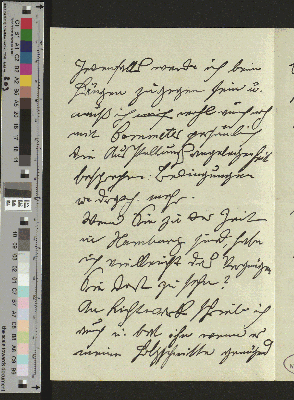 Jedenfalls werde ich beim
Hängen zugegen sein u.
muß ich auch
mit Commeter
die Ausstellungsangelegenheit
besprechen. Bedingungen
u. dergl. mehr.
Wenn Sie zu der Zeit
in Hamburg sind, habe
ich vielleicht das Vergnügen
Sie dort zu sehen?
An Lichtwark schreibe ich
auch u. bat ihn wenn er
meine Holzschnitte